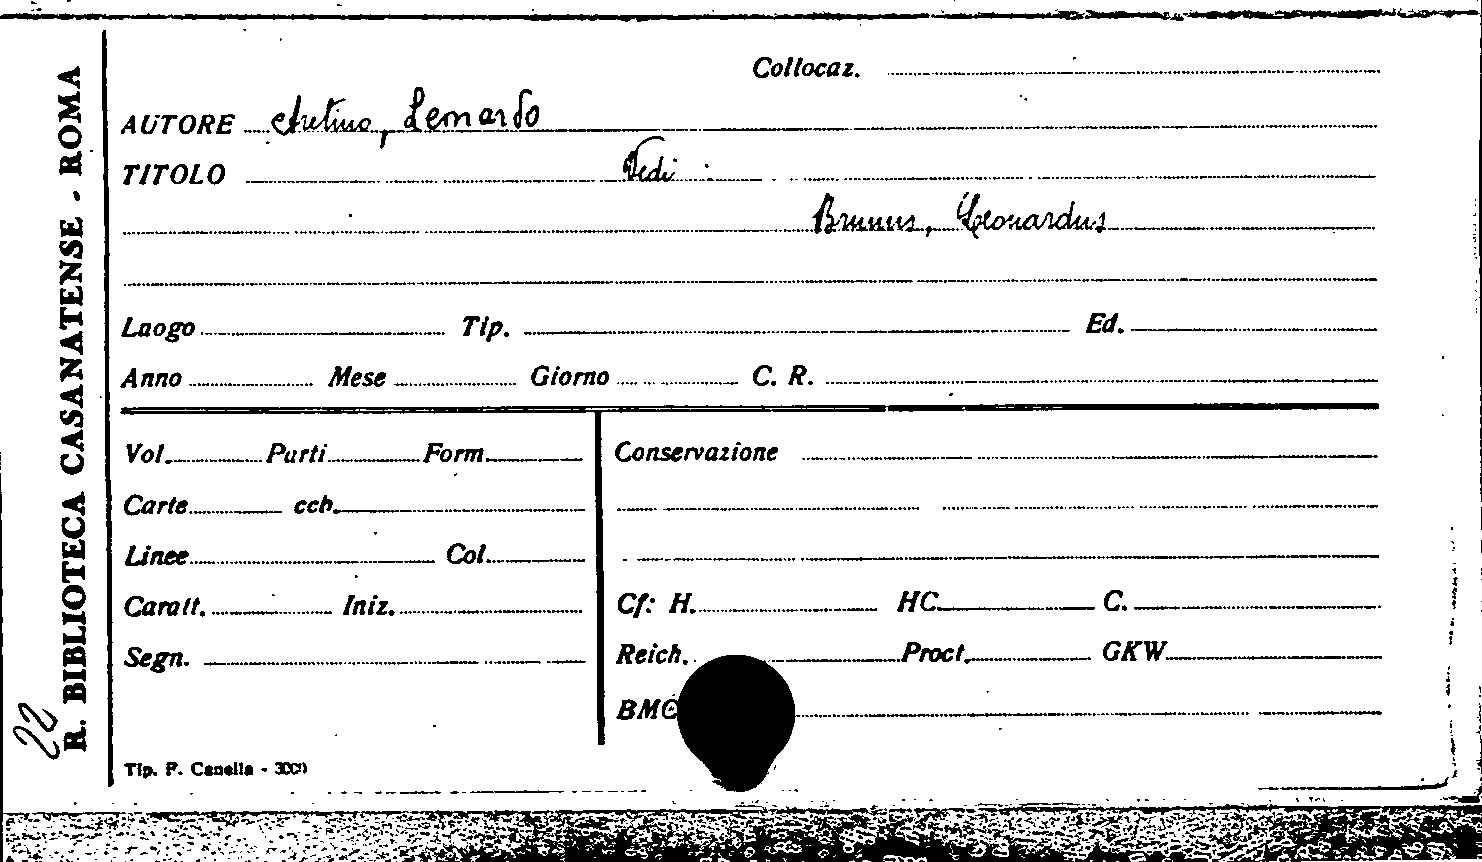 R. BIBLIOTECA CASANATENSE - ROMA
22
Collocaz.
AUTORE Aretino, Leonardo
TITOLO Vedi :
Brunus, Leonardus
Luogo Tip. Ed.
Anno Mese Giorno C. R.
Vol. Parti Form.
Carte cch.
Linee Col.
Caratt. Iniz.
Segn.
Conservazione
Cf: H. HC. C.
Reich. Proct. GKW.
BMC
Tip. F. Canella - 3000